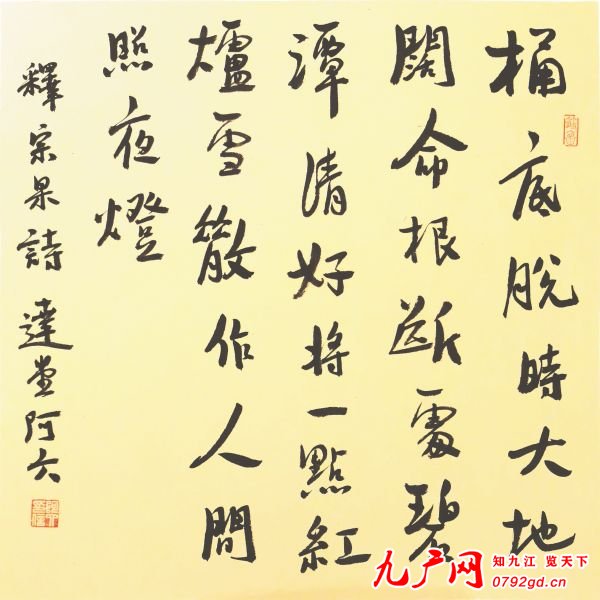 桶底脱時大地
闊命根断處碧
潭清好将一點紅
爐雪散作人間
照夜燈
釋宗杲詩 達堂阿六
知九江 览天下
0792gd.cn